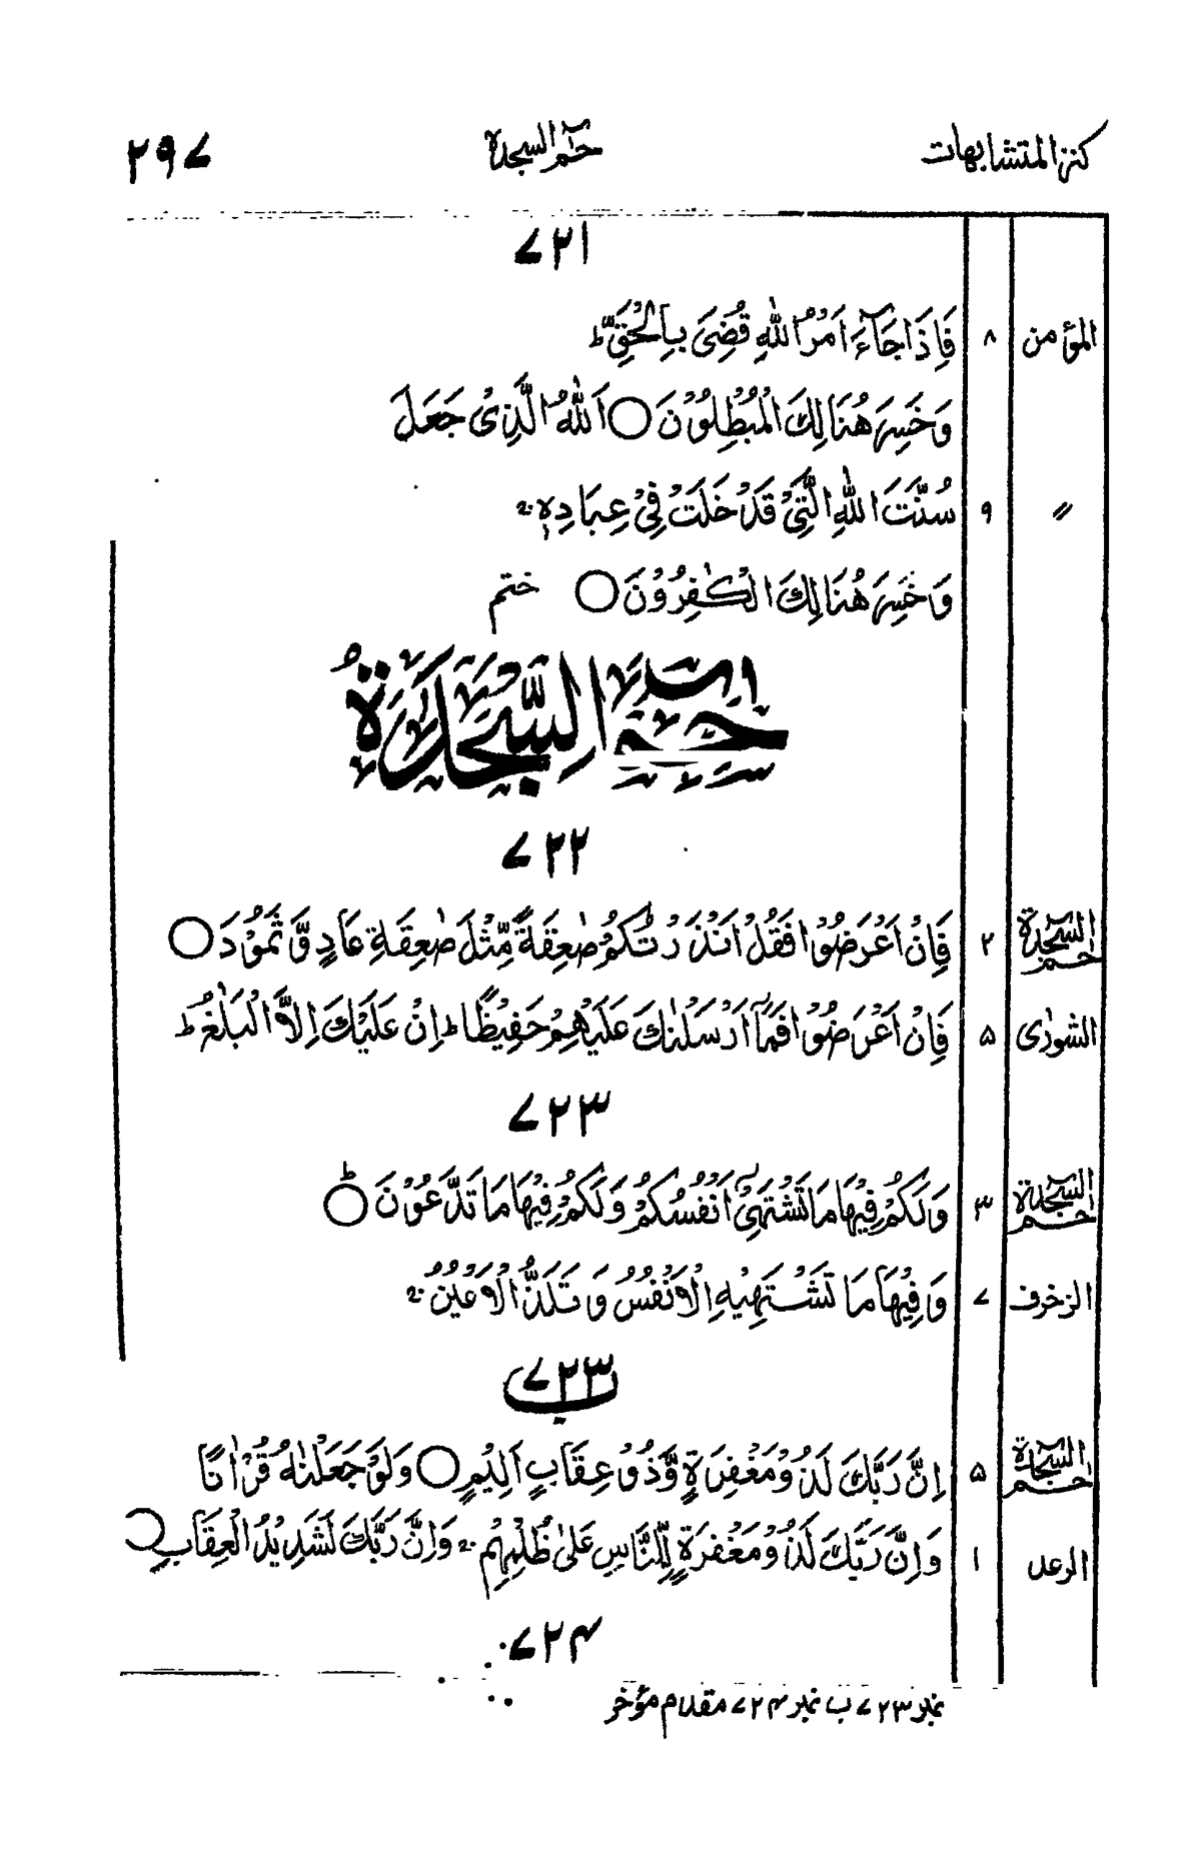 كنز المتشابهات حٰمٓ السجدة ۲۹۷
۷۲۱
المؤمن ۸ فَاِذَا جَآءَ اَمْرُ اللّٰهِ قُضِیَ بِالْحَقِّ ؕ
وَخَسِرَ هُنَالِكَ الْمُبْطِلُوْنَ ○ اَللّٰهُ الَّذِیْ جَعَلَ
〃 ۹ سُنَّتَ اللّٰهِ الَّتِیْ قَدْ خَلَتْ فِیْ عِبَادِهٖ ۚ
وَخَسِرَ هُنَالِكَ الْكٰفِرُوْنَ ○ ختم
حٰمٓ السَّجْدَةُ
۷۲۲
حٰمٓ السجدة ۲ فَاِنْ اَعْرَضُوْا فَقُلْ اَنْذَرْتُكُمْ صٰعِقَةً مِّثْلَ صٰعِقَةِ عَادٍ وَّ ثَمُوْدَ ○
الشورٰی ۵ فَاِنْ اَعْرَضُوْا فَمَاۤ اَرْسَلْنٰكَ عَلَیْهِمْ حَفِیْظًا ؕ اِنْ عَلَیْكَ اِلَّا الْبَلٰغُ ؕ
۷۲۳
حٰمٓ السجدة ۳ وَلَكُمْ فِیْهَا مَا تَشْتَهِیْۤ اَنْفُسُكُمْ وَلَكُمْ فِیْهَا مَا تَدَّعُوْنَ ○ؕ
الزخرف ۷ وَفِیْهَا مَا تَشْتَهِیْهِ الْاَنْفُسُ وَ تَلَذُّ الْاَعْیُنُ ۚ
۷۲۳ب
حٰمٓ السجدة ۵ اِنَّ رَبَّكَ لَذُوْ مَغْفِرَةٍ وَّذُوْ عِقَابٍ اَلِیْمٍ ○ وَلَوْ جَعَلْنٰهُ قُرْاٰنًا
الرعد ۱ وَاِنَّ رَبَّكَ لَذُوْ مَغْفِرَةٍ لِّلنَّاسِ عَلٰی ظُلْمِهِمْ ۚ وَاِنَّ رَبَّكَ لَشَدِیْدُ الْعِقَابِ ○
۷۲۴
نمبر ۷۲۳ ب نمبر ۷۲۴ مقدم مؤخر